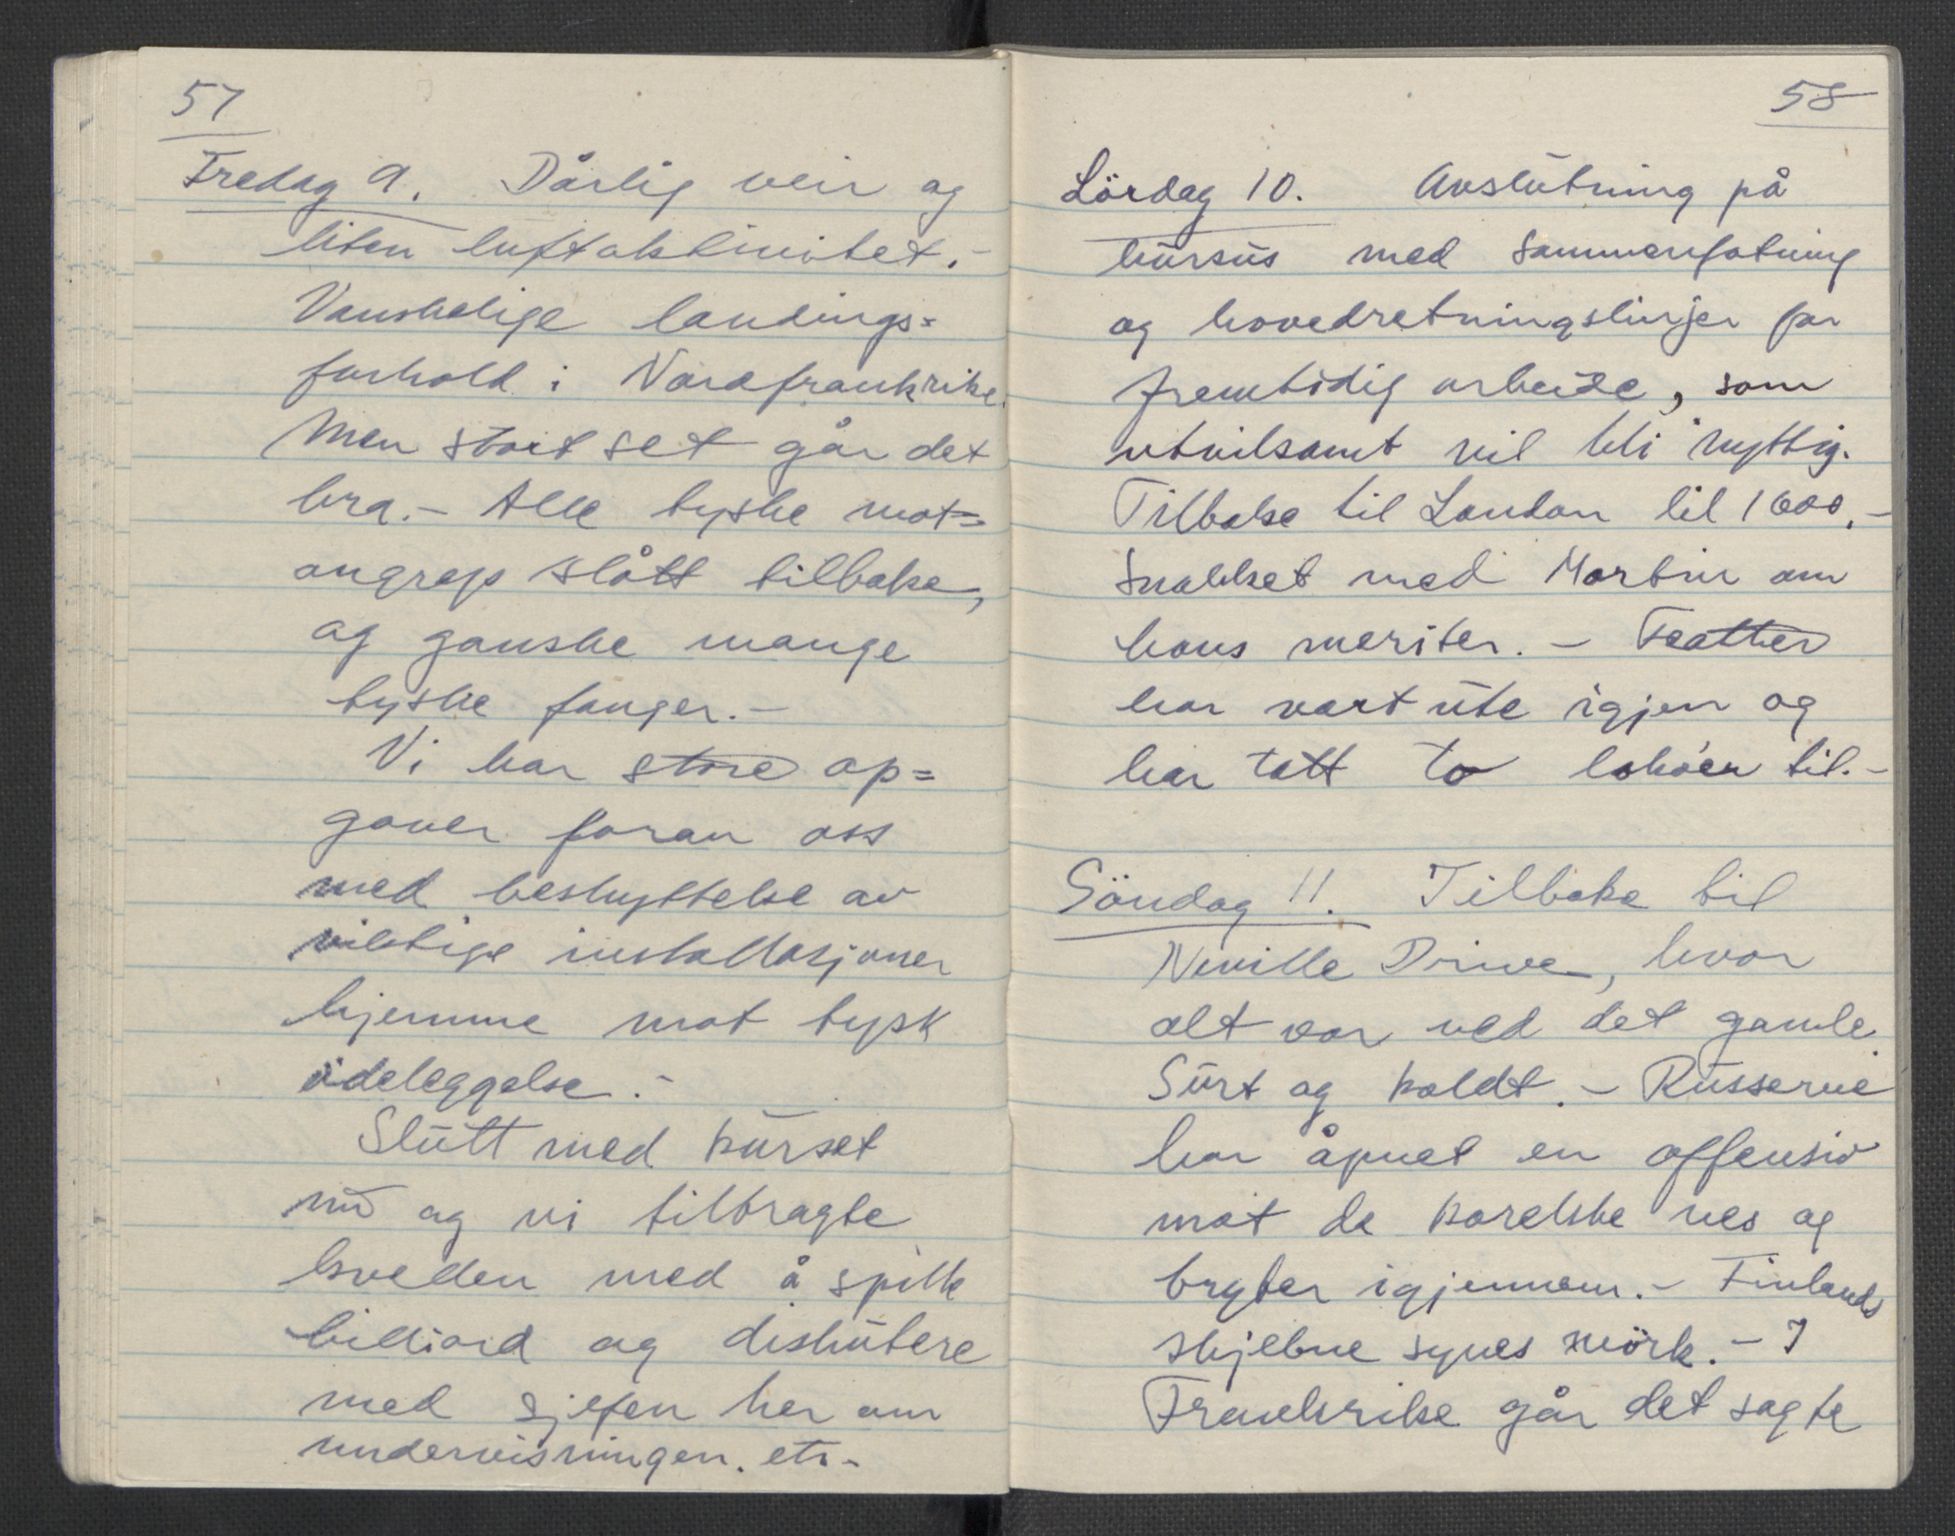 57
Fredag 9. Dårlig veir og
liten luftaktivitet.-
Vanskelige landings=
forhold i Nordfrankrike.
Men stort set går det
bra.- Alle tyske mot=
angrep slått tilbake,
og ganske mange
tyske fanger.-
Vi har store op=
gaver foran oss
med beskyttelse av
viktige installasjoner
hjemme mot tysk
ödeleggelse.-
Slutt med kurset
nu og vi tilbragte
kvelden med å spille
billiard og diskutere
med sjefen her om
undervisningen. etc-
58
Lördag 10. Avslutning på
kursus med sammenfatning
og hovedretningslinjer for
fremtidig arbeide, som
utvilsomt vil bli nyttig.
Tilbake til London kl 1600.-
Snakket med Martin om
hans meriter. - Feather
har vært ute igjen og
har tatt to lokóer til.-
Söndag 11. Tilbake til
Neville Drive, hvor
alt var ved det gamle
Surt og koldt. - Russerne
har åpnet en offensiv
mot de karelske nes og
bryter igjennem.- Finlands
skjebne synes mörk. - I
Frankrike går det sagte